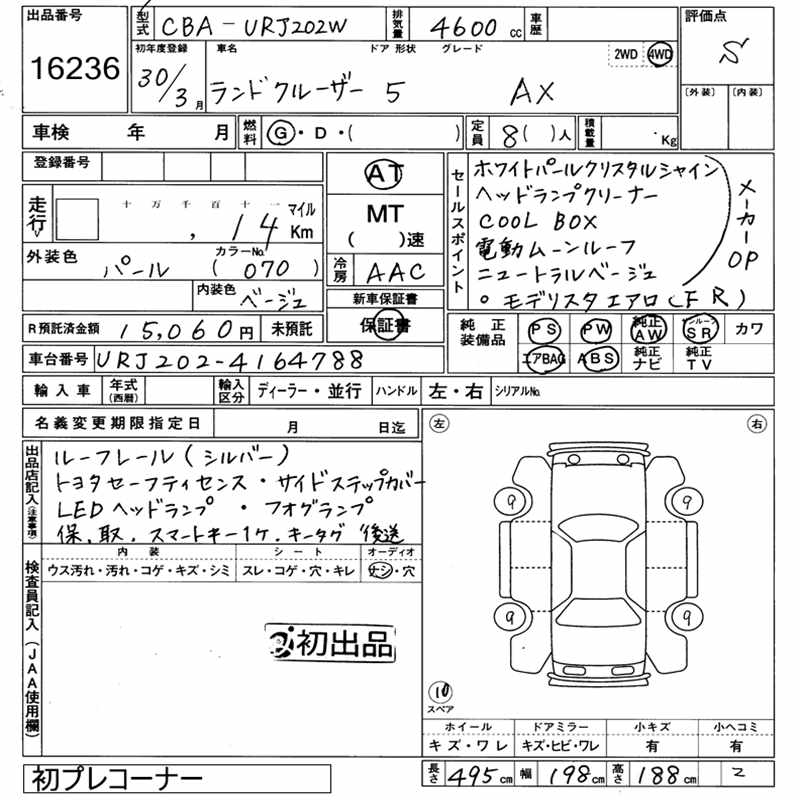 出品番号 型式 CBA-URJ202W 排気量 4600 cc 車歴 評価点
16236 初年度登録 車名 ドア 形状 グレード 2WD 4WD S
30/3月 ランドクルーザー 5 AX [外装] [内装]
車検 年 月 燃料 G・D・( ) 定員 8( )人 積載量 Kg
登録番号 AT セールスポイント ホワイトパールクリスタルシャイン
走行 十 万 千 百 十 一 , 14 マイル Km MT ヘッドランプクリーナー メーカーOP
( )速 COOL BOX
外装色 パール カラーNo. (070) 冷房 AAC 電動ムーンルーフ
内装色 ベージュ 新車保証書 ニュートラルベージュ
R預託済金額 15,060円 未預託 保証書 ○モデリスタエアロ(F R)
車台番号 URJ202-4164788 純正装備品 PS PW 純正AW サンルーフSR カワ
エアBAG ABS 純正ナビ 純正TV
輸入車 年式(西暦) 輸入区分 ディーラー・並行 ハンドル 左・右 シリアルNo.
名義変更期限指定日 月 日迄 左 右
出品店記入(注意事項) ルーフレール(シルバー)
トヨタセーフティセンス・サイドステップカバー
LEDヘッドランプ ・フォグランプ
保.取.スマートキー1ケ.キータグ 後送
検査員記入(JAA使用欄) 内装 シート オーディオ
ウス汚れ・汚れ・コゲ・キズ・シミ スレ・コゲ・穴・キレ ナシ・穴
9 9
初出品
9 9
10
スペア
ホイール ドアミラー 小キズ 小ヘコミ
キズ・ワレ キズ・ヒビ・ワレ 有 有
初プレコーナー 長さ 495cm 幅 198cm 高さ 188cm 2